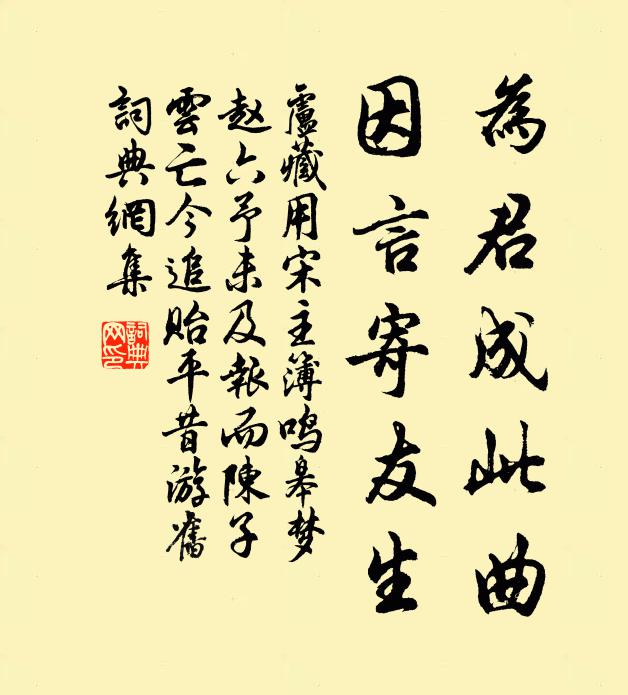 為君成此曲
因言寄友生
盧藏用宋主簿鳴皋梦
赵六予未及報而陳子
雲亡今追貽平昔游舊
詞典網集
詞典
网印